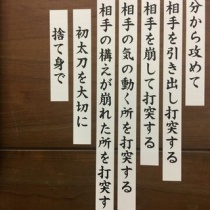 分から攻めて
相手を引き出し打突する
相手を崩して打突する
相手の気の動く所を打突する
相手の構えが崩れた所を打突す
初太刀を大切に
捨て身で